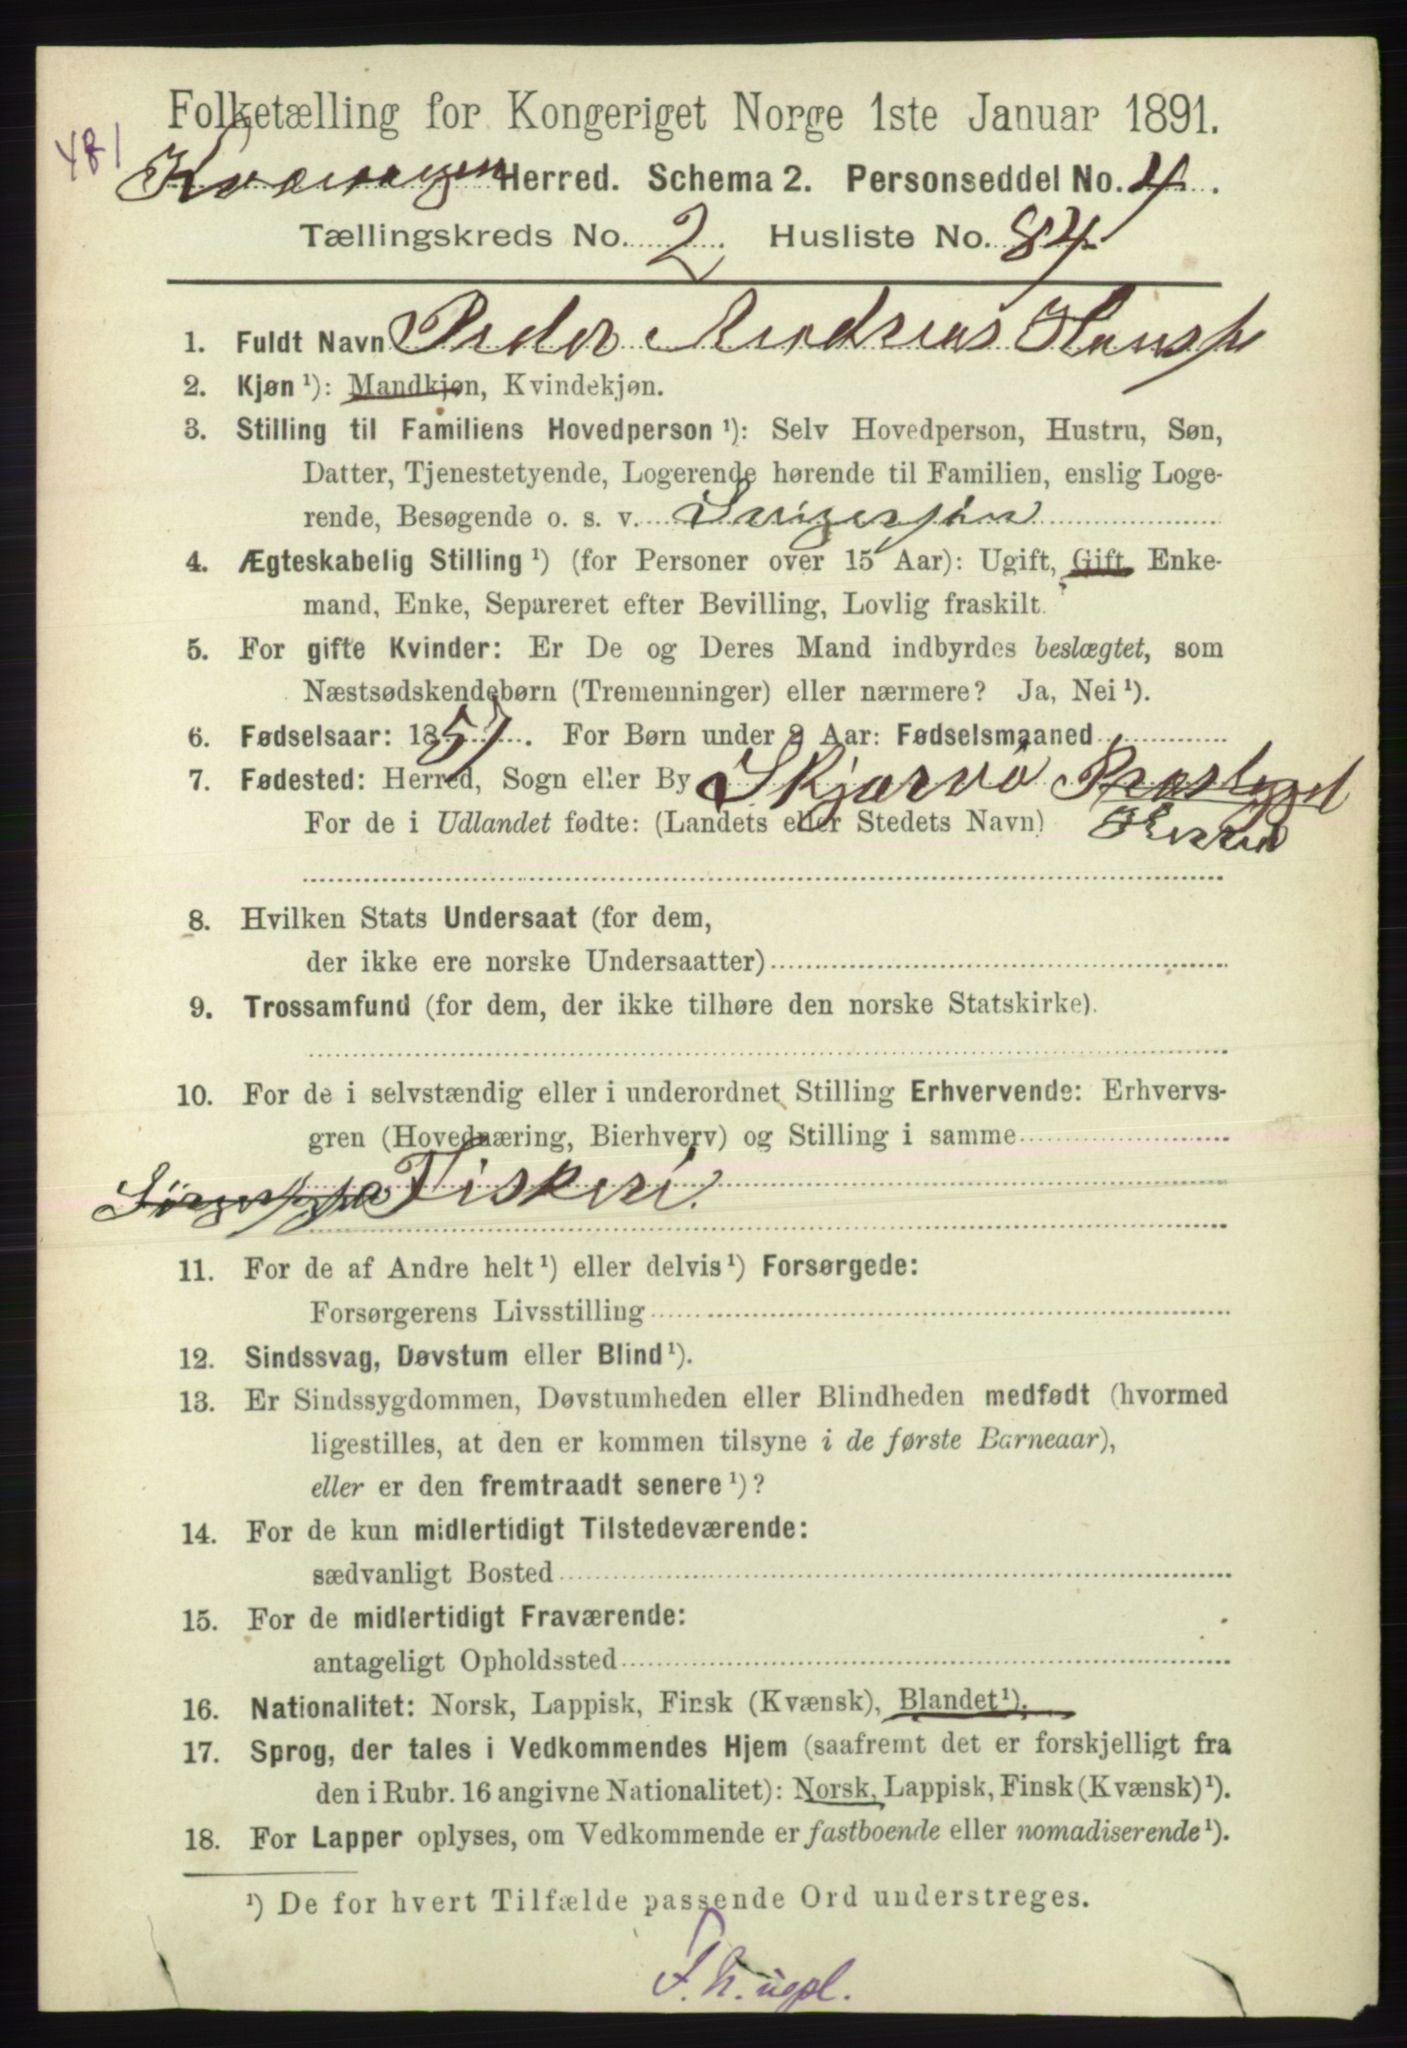 481
Folketælling for Kongeriget Norge 1ste Januar 1891.
Kvænangen Herred. Schema 2. Personseddel No. 4.
Tællingskreds No. 2. Husliste No. 84
1. Fuldt Navn Peder Andreas Hans
2. Kjøn ¹): Mandkjøn, Kvindekjøn.
3. Stilling til Familiens Hovedperson ¹): Selv Hovedperson, Hustru, Søn,
Datter, Tjenestetyende, Logerende hørende til Familien, enslig Loge-
rende, Besøgende o. s. v. Svigersøn
4. Ægteskabelig Stilling ¹) (for Personer over 15 Aar): Ugift, Gift, Enke-
mand, Enke, Separeret efter Bevilling, Lovlig fraskilt.
5. For gifte Kvinder: Er De og Deres Mand indbyrdes beslægtet, som
Næstsødskendebørn (Tremenninger) eller nærmere? Ja, Nei ¹).
6. Fødselsaar: 1857. For Børn under 2 Aar: Fødselsmaaned
7. Fødested: Herred, Sogn eller By Skjærvø Præstegjel
For de i Udlandet fødte: (Landets eller Stedets Navn) Herred
8. Hvilken Stats Undersaat (for dem,
der ikke ere norske Undersaatter)
9. Trossamfund (for dem, der ikke tilhøre den norske Statskirke).
10. For de i selvstændig eller i underordnet Stilling Erhvervende: Erhvervs-
gren (Hovednæring, Bierhverv) og Stilling i samme
Fiskeri.
11. For de af Andre helt ¹) eller delvis ¹) Forsørgede:
Forsørgerens Livsstilling
12. Sindssvag, Døvstum eller Blind ¹).
13. Er Sindssygdommen, Døvstumheden eller Blindheden medfødt (hvormed
ligestilles, at den er kommen tilsyne i de første Barneaar),
eller er den fremtraadt senere ¹)?
14. For de kun midlertidigt Tilstedeværende:
sædvanligt Bosted
15. For de midlertidigt Fraværende:
antageligt Opholdssted
16. Nationalitet: Norsk, Lappisk, Finsk (Kvænsk), Blandet ¹).
17. Sprog, der tales i Vedkommendes Hjem (saafremt det er forskjelligt fra
den i Rubr. 16 angivne Nationalitet): Norsk, Lappisk, Finsk (Kvænsk) ¹).
18. For Lapper oplyses, om Vedkommende er fastboende eller nomadiserende ¹).
¹) De for hvert Tilfælde passende Ord understreges.